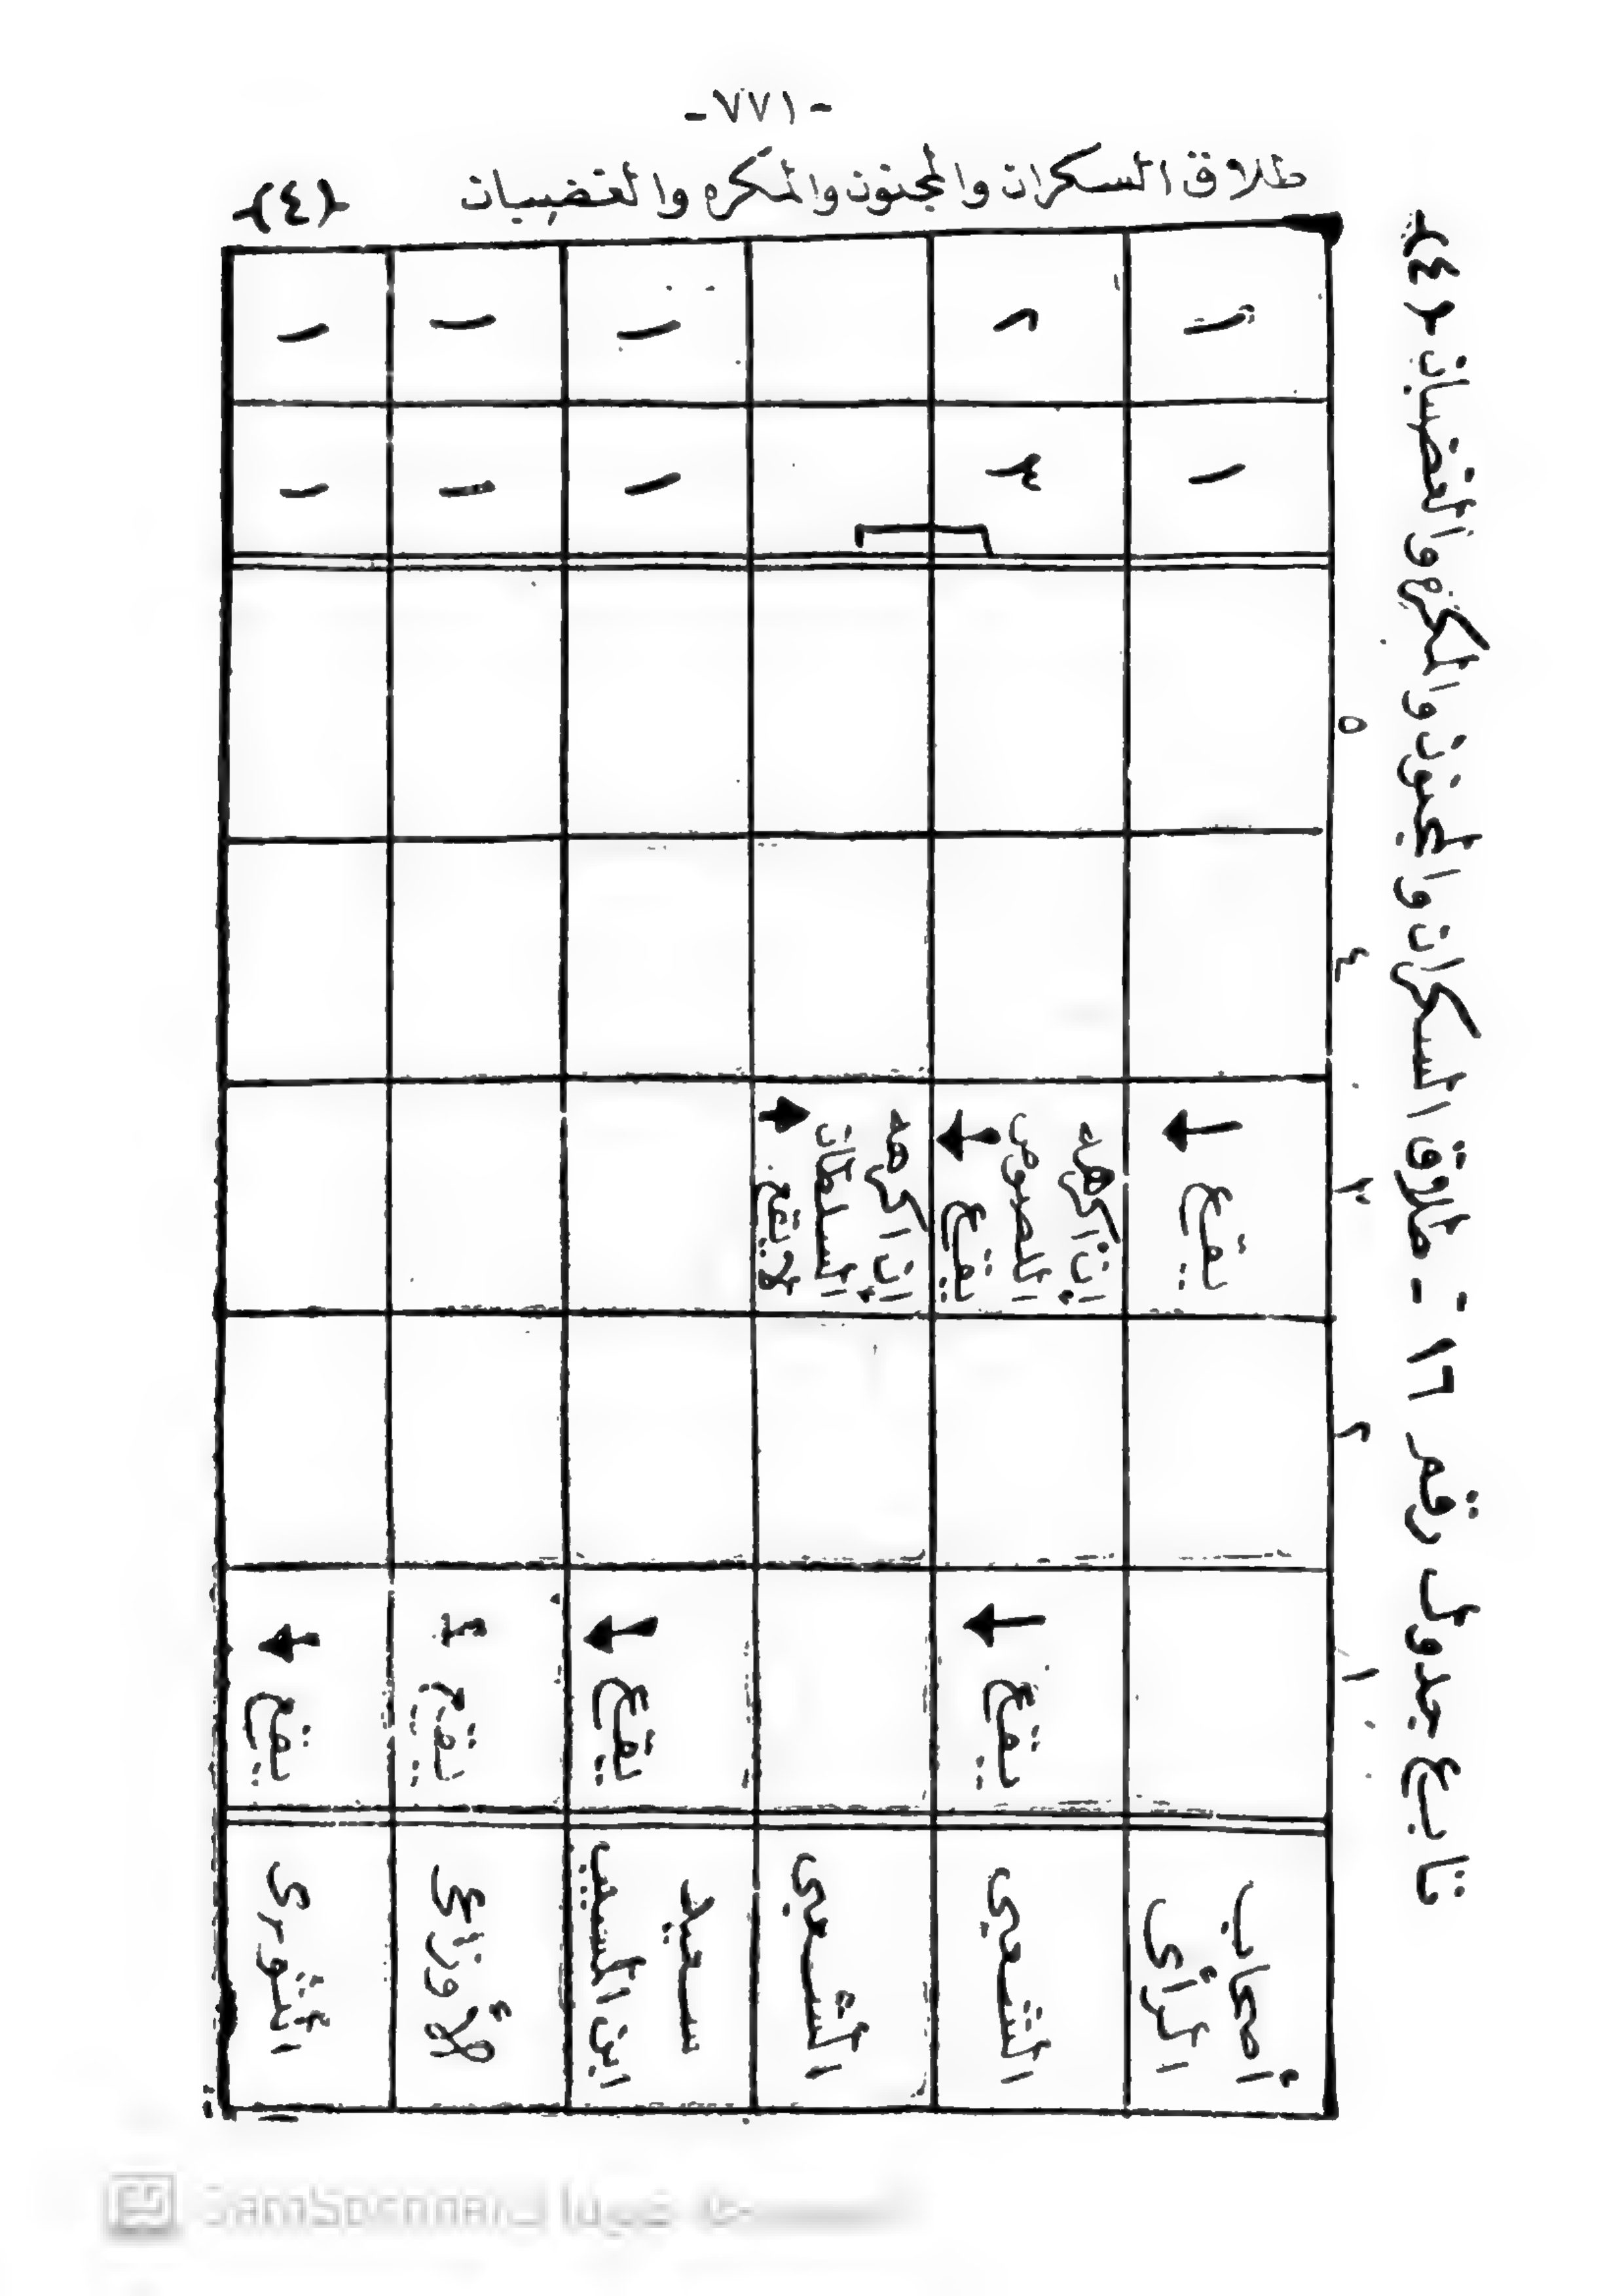 -٧٧١-
طلاق السكران والمجنون والمكره والغضبان {٤}
تابع جدول رقم ١٦ - طلاق السكران والمجنون والمكره والغضبان {٤}
١ ٢ ٣ ٤ ٥
أصحاب الرأى يقع ← ١ ١
الشعبى يقع ← إن اكرهه اللصوص يقع ← ٣ ٢
الشعبى إن اكرهه السلطان لا يقع →
سعيد ابن المسيب يقع ← ١ ١
الأوزاعى يقع ١ ١
الثورى يقع ← ١ ١